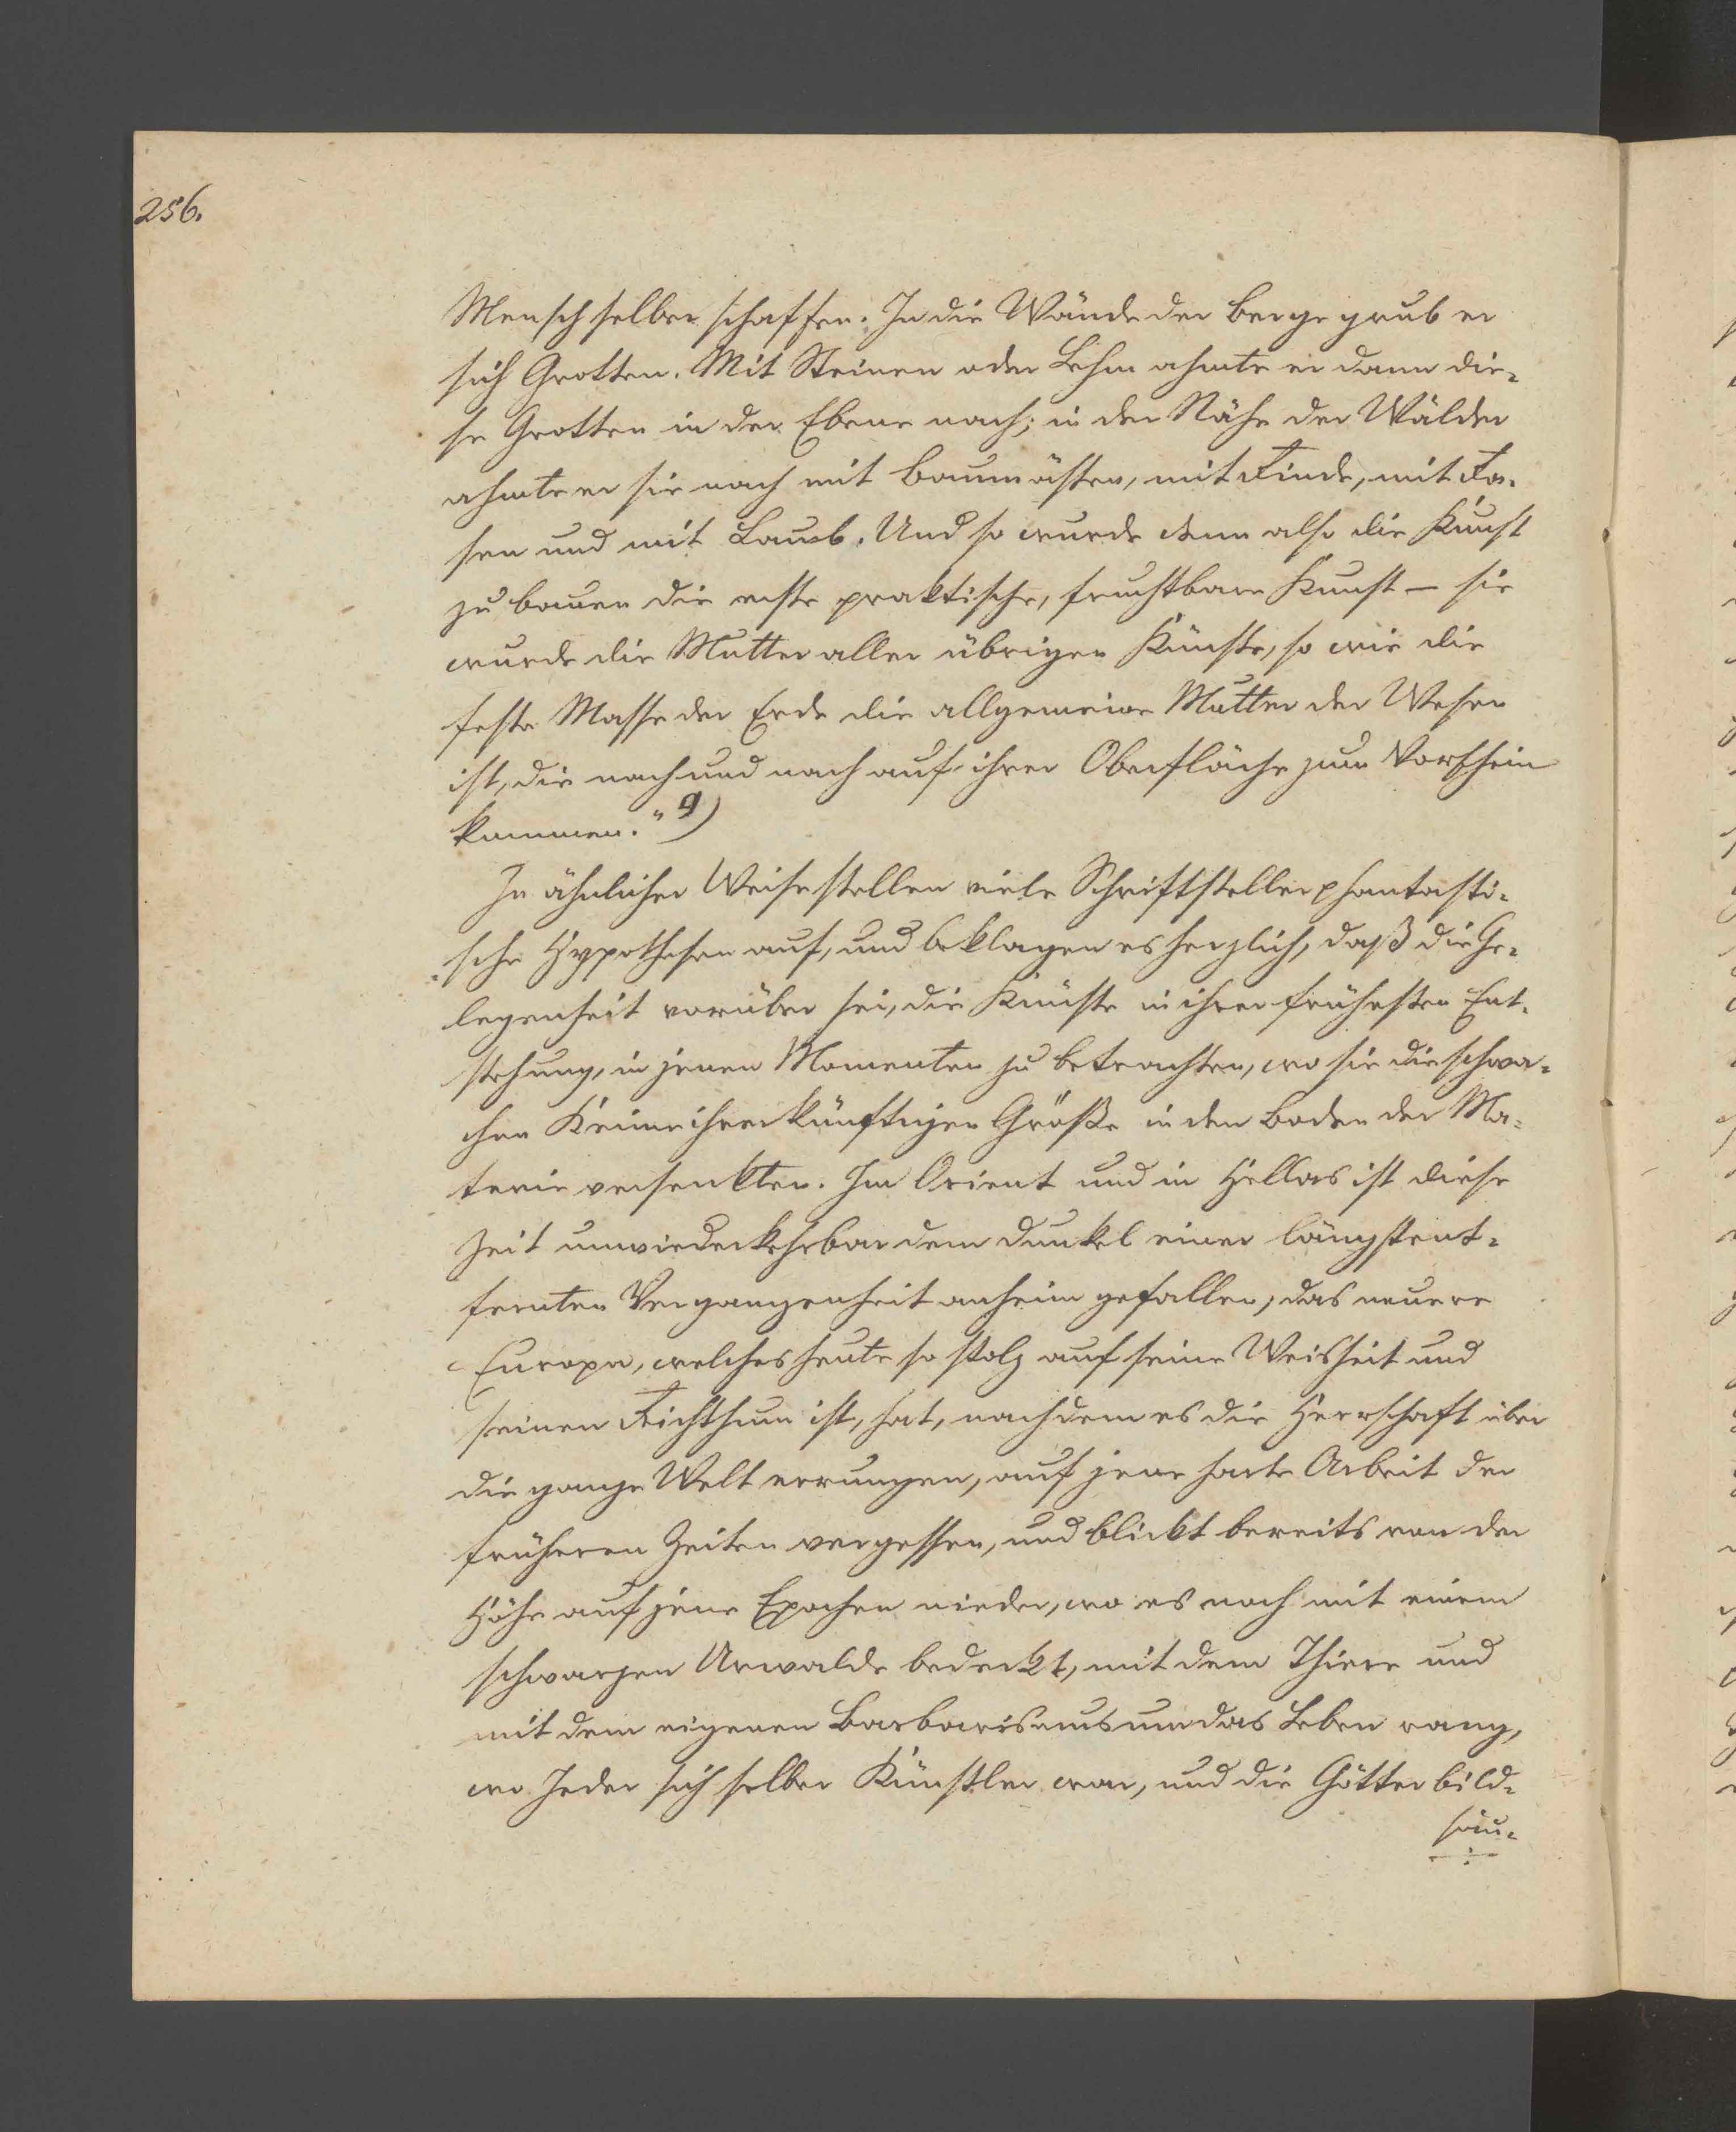 256.
Mensch selber schaffen. In die Wände der Berge grub er
sich Grotten. Mit Steinen oder Lehm ahmte er dann die-
se Grotten in der Ebene nach; in der Nähe der Wälder
ahmte er sie nach mit Baumästen, mit Rinde, mit Ra-
sen und mit Laub. Und so wurde denn also die Kunst
zu bauen die erste praktische, fruchtbare Kunst – sie
wurde die Mutter aller übrigen Künste, so wie die
feste Masse der Erde die allgemeine Mutter der Wesen
ist, die nach und nach auf ihrer Oberfläche zum Vorschein
kommen." 9)
In ähnlicher Weise stellen viele Schriftsteller phantasti-
sche Hypothesen auf, und beklagen es herzlich, daß die Ge-
legenheit vorüber sei, die Künste in ihrer frühesten Ent-
stehung, in jenen Momenten zu betrachten, wo sie die schwa-
chen Keime ihrer künftigen Größe in den Boden der Ma-
terie versenkten. Im Orient und in Hellas ist diese
Zeit unwiederkehrbar dem Dunkel einer längst ent-
fernten Vergangenheit anheim gefallen, das neuere
Europa, welches heute so stolz auf seine Weisheit und
seinen Reichthum ist, hat, nachdem es die Herrschaft über
die ganze Welt errungen, auf jene harte Arbeit der
früheren Zeiten vergessen, und blickt bereits von der
Höhe auf jene Epochen nieder, wo es noch mit einem
schwarzen Urwalde bedeckt, mit dem Thiere und
mit dem eigenen Barbarismus um das Leben rang,
wo Jeder sich selber Künstler war, und die Götterbild-
säu-